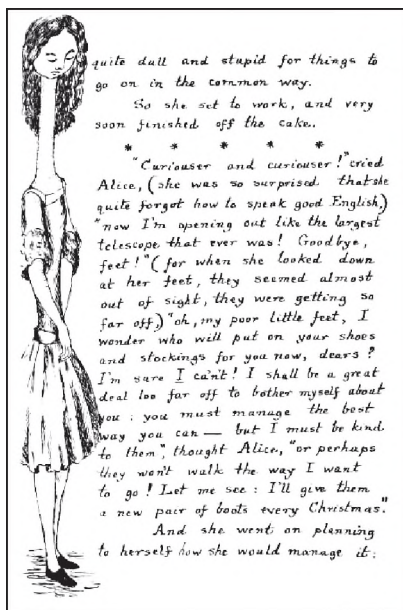 quite dull and stupid for things to
go on in the common way.
So she set to work, and very
soon finished off the cake.
* * * * *
"Curiouser and curiouser!" cried
Alice, (she was so surprised that she
quite forgot how to speak good English,)
"now I'm opening out like the largest
telescope that ever was! Goodbye,
feet!" (for when she looked down
at her feet, they seemed almost
out of sight, they were getting so
far off,) "oh, my poor little feet, I
wonder who will put on your shoes
and stockings for you now, dears?
I'm sure I can't! I shall be a great
deal too far off to bother myself about
you: you must manage the best
way you can — but I must be kind
to them", thought Alice, "or perhaps
they won't walk the way I want
to go! Let me see: I'll give them
a new pair of boots every Christmas."
And she went on planning
to herself how she would manage it: